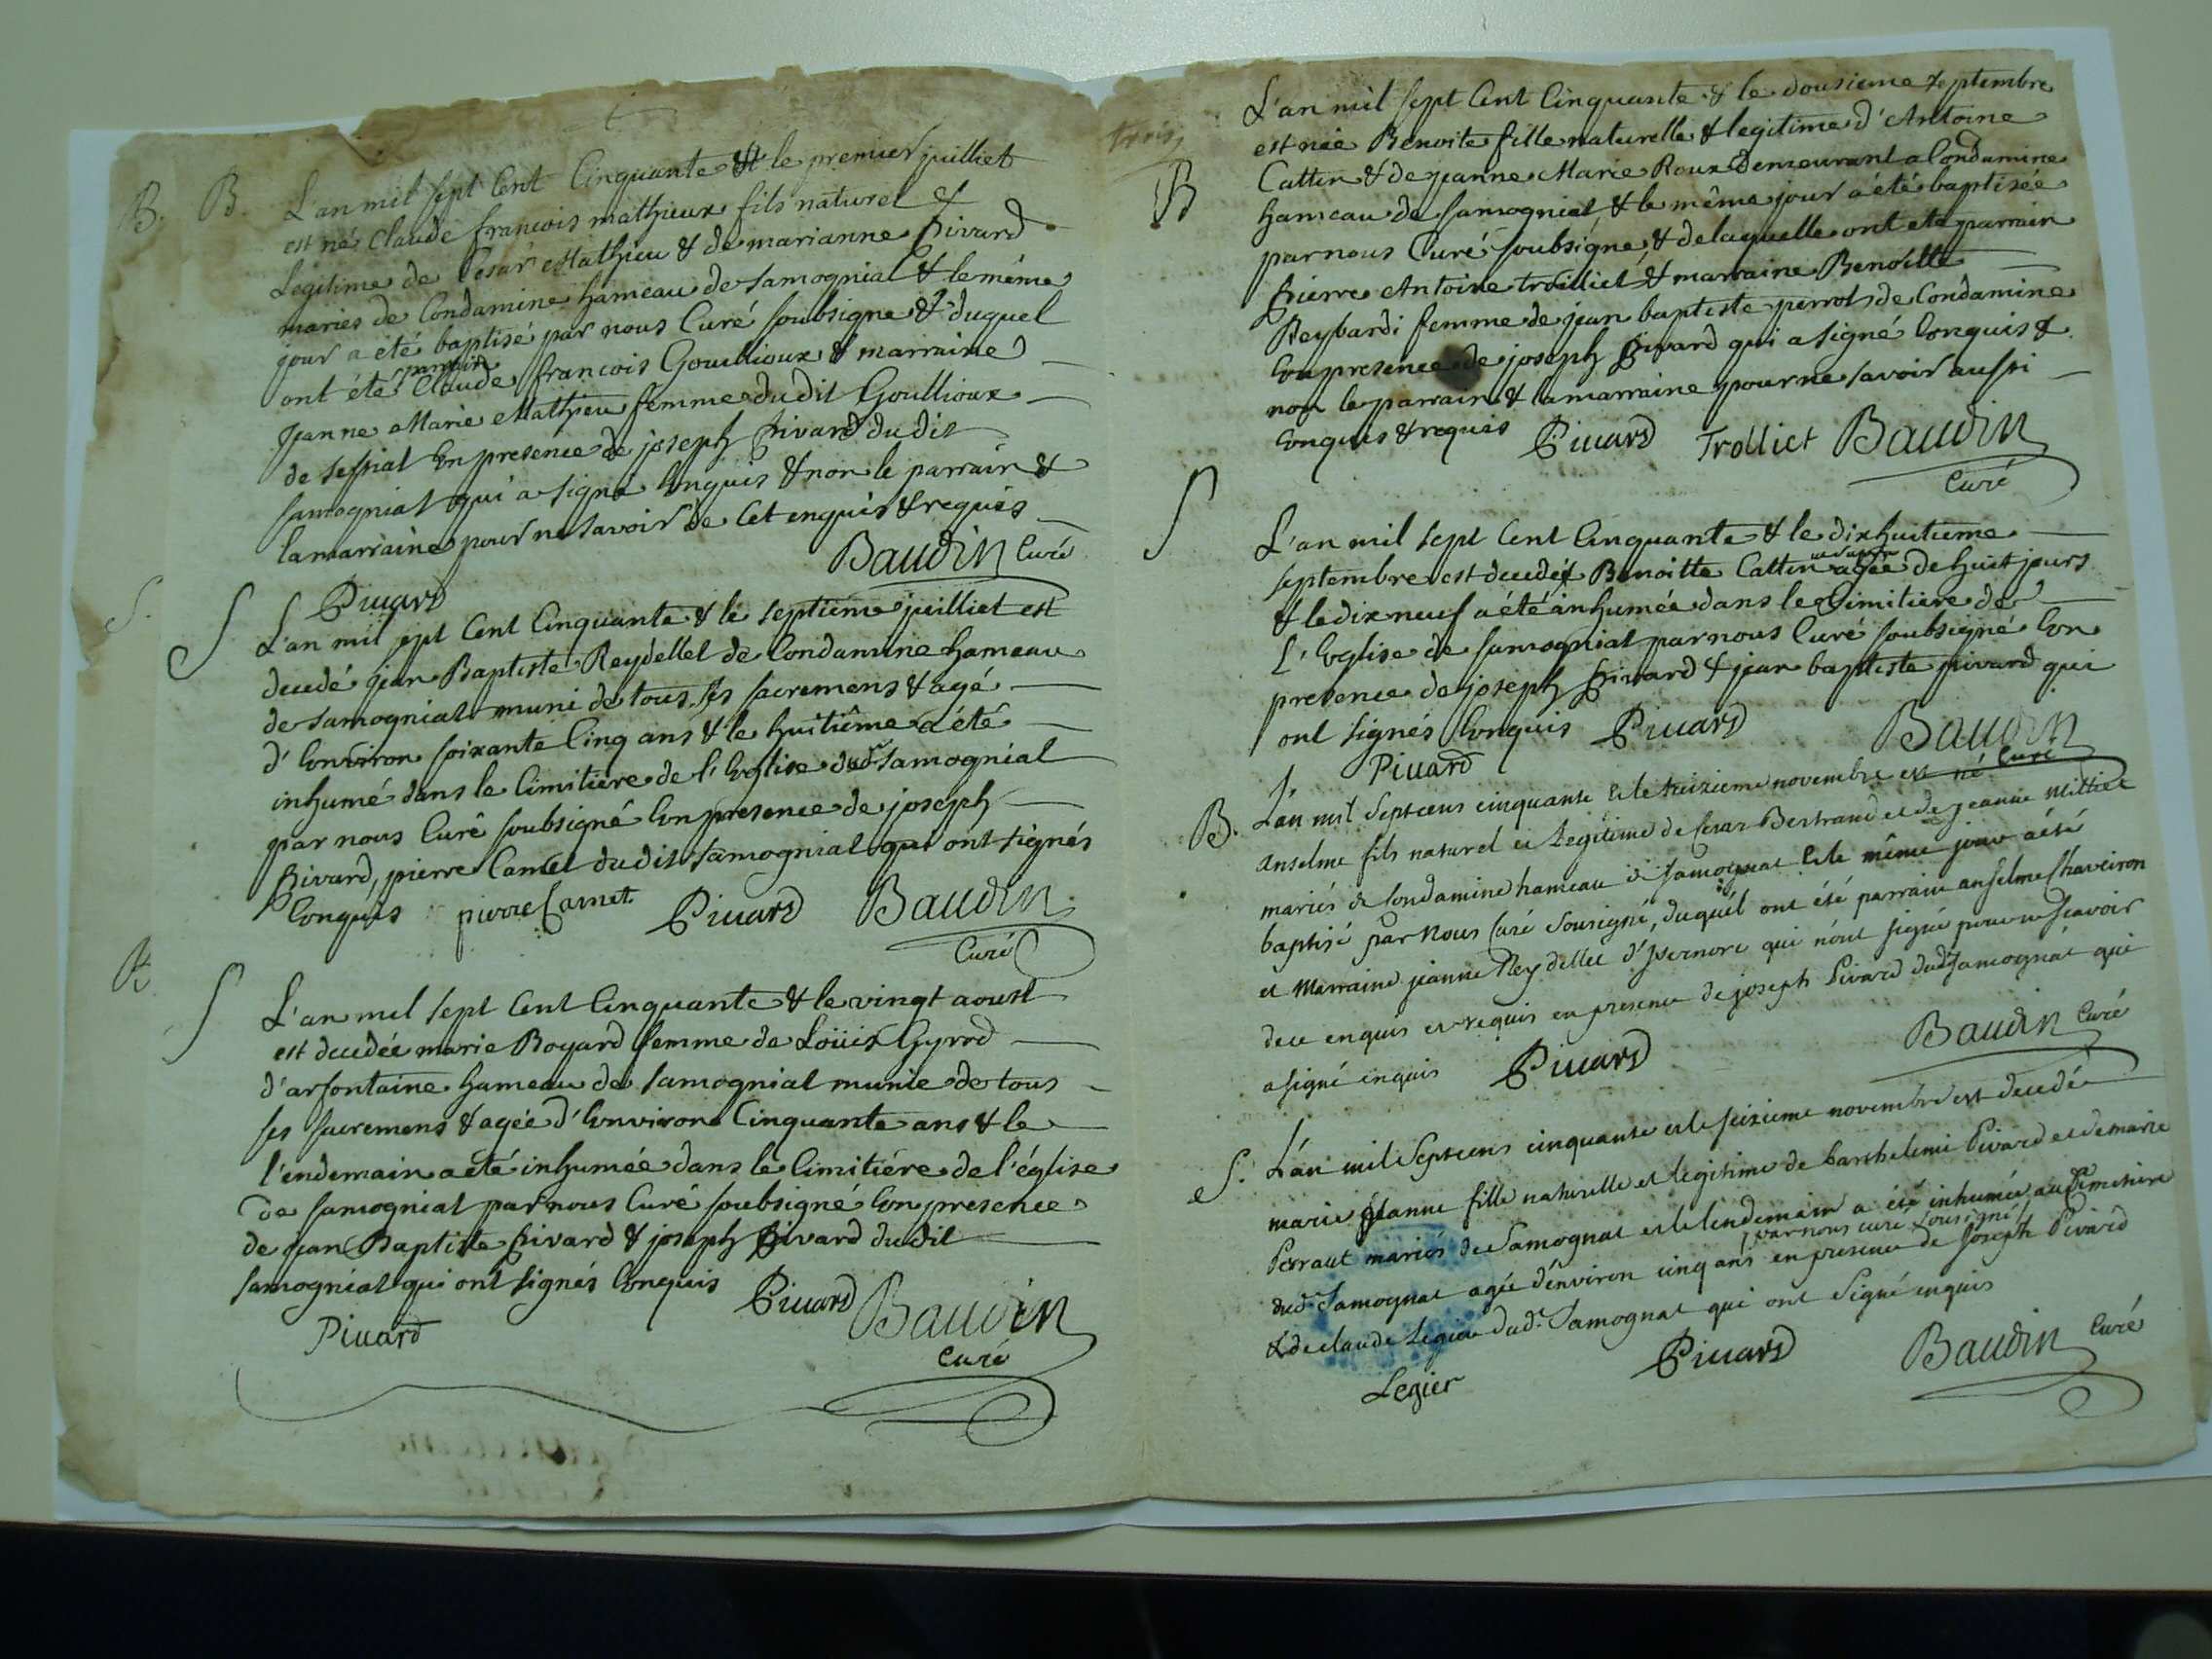 B. B. L'an mil sept Cent Cinquante & le premier juilliet
est né Claude françois mathieux fils naturel &
Legitime de Cesar Mathieu & de marianne Pivard
mariés de Condamine hameau de Samogniat & le même
jour a été baptisé par nous Curé soubsigné & duquel
parrain
ont été Claude françois Goullioux & marraine
Jeanne Marie Mathieu femme dudit Goullioux
de En presence de joseph Pivard dudit
Samogniat qui a signé Enquis & non le parrain &
la marraine pour ne savoir de Cet enquis & requis
Baudin Curé
Pivard
S. S L'an mil sept Cent Cinquante & le septième juilliet est
decedé jean Baptiste Reydellet de Condamine hameau
de Samogniat muni de tous ses sacremens & agé
d'Environ soixante Cinq ans & le huitième a été
inhumé dans le Cimitiere de l'Eglise dud Samogniat
par nous Curé soubsigné En presence de joseph
Pivard, pierre Camet dudit Samogniat qui ont signés
Enquis pierre Camet Pivard Baudin
Curé
S L'an mil sept Cent Cinquante & le vingt aoust
est decedée marie Boyard femme de Loüis Gyrod
d'arfontaine hameau de Samogniat munie de tous
ses sacremens & agée d'Environ Cinquante ans & le
l'endemain a eté inhumée dans le Cimitiére de l'église
de Samogniat par nous Curé soubsigné En presence
de jean Baptiste Pivard & joseph Pivard dudit
Samogniat qui ont signés Enquis Pivard Baudin
Pivard Curé
trois
L'an mil sept Cent Cinquante & le dousieme septembre
est née Benoite fille naturelle & legitime d'Antoine
B Cattin & de jeanne Marie Roux demeurant a Condamine
hameau de Samogniat & le même jour a été baptisée
par nous Curé soubsigné & de laquelle ont eté parrain
Pierre Antoine trolliet & marraine Benoitte
Reybardi femme de jean baptiste perrot de Condamine
En presence de joseph Pivard qui a signé Enquis &
non le parrain & la marraine pour ne savoir aussi
Enquis & requis Pivard Trolliet Baudin
Curé
S L'an mil sept Cent Cinquante & le dixhuitieme
septembre est decedée Benoitte Cattin agée de huit jours
& le dix neuf a été inhumée dans le Cimitiere de
L'Eglise de Samogniat par nous Curé soubsigné En
presence de joseph Pivard & jean baptiste pivard qui
ont signés Enquis Pivard Baudin
Pivard Curé
B. L'an mil Septcens cinquante et le treizieme novembre est né
anselme fils naturel et Legitime de Cesar Bertrand et de jeanne Mittiet
mariés de Condamine hameau de Samognat et le même jour a été
baptisé par Nous Curé Sousigné, duquel ont été parrain anselme Chaveiron
et Marraine jeanne Reydellet d'Isernore qui n'ont signé pour ne scavoir
dece enquis et requis en presence de joseph Pivard dud. Samognat qui
a signé enquis Pivard Baudin Curé
S. L'an mil Septcens cinquante et le seizieme novembre est decedée
marie jeanne fille naturelle et legitime de barthelemi Pivard et de marie
Perraut mariés de Samognat et le lendemain a été inhumée au Cimetiere
par nous curé Sousigné
dud. Samognat agée d'environ cinq ans en presence de Joseph Pivard
& de claude Legier dud. Samognat qui ont Signé enquis
Legier Pivard Baudin Curé